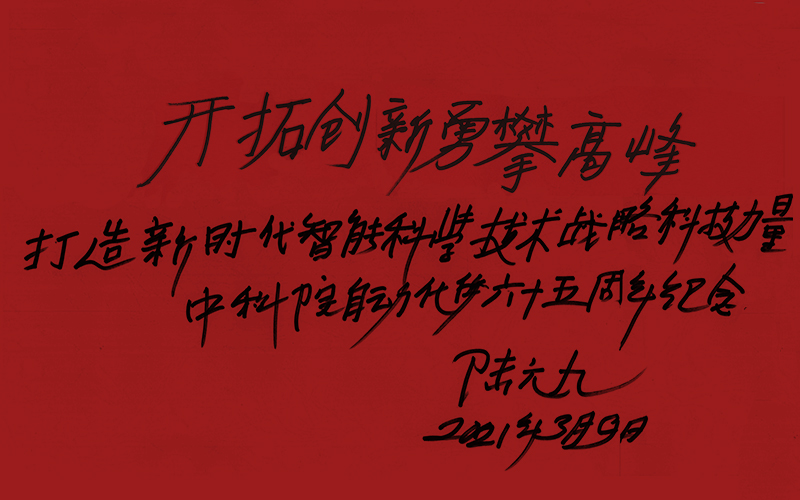 开拓创新勇攀高峰
打造新时代智能科学技术战略科技力量
中科院自动化所六十五周年纪念
陆元九
2021年3月9日